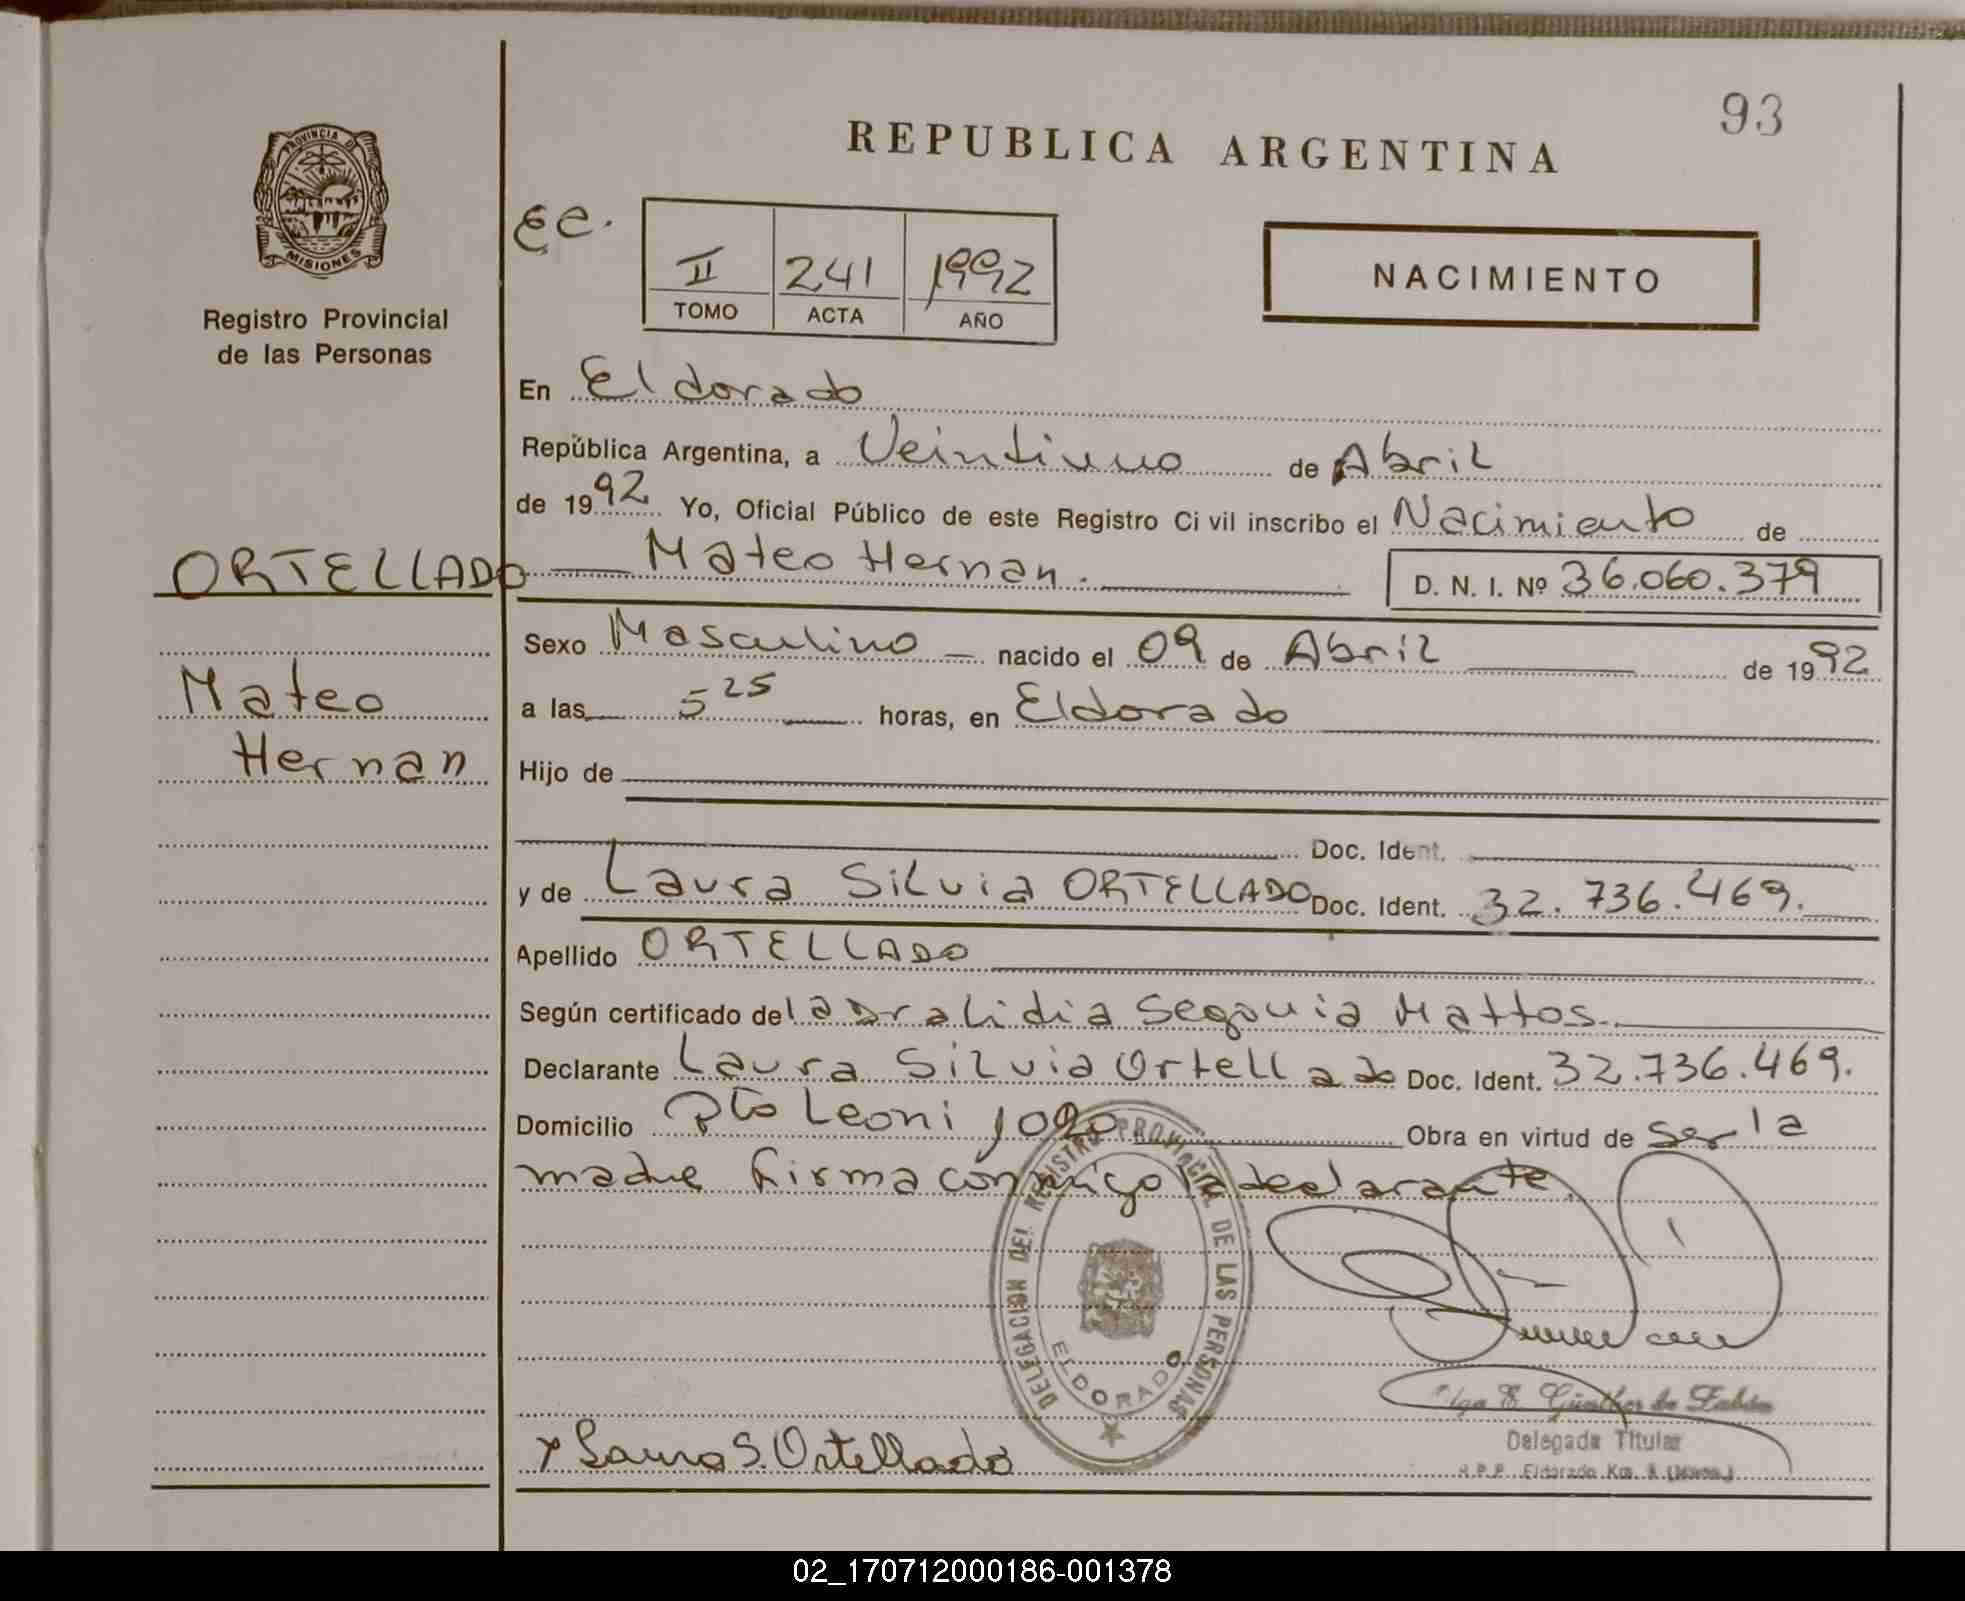 93
REPUBLICA ARGENTINA
PROVINCIA DE
MISIONES
Registro Provincial
de las Personas
Ee.
II 241 1992
TOMO ACTA AÑO
NACIMIENTO
En Eldorado
República Argentina, a Veintiuno de Abril
de 1992 Yo, Oficial Público de este Registro Civil inscribo el Nacimiento de
ORTELLADO Mateo Hernan. D. N. I. Nº 36.060.379
Sexo Masculino nacido el 09 de Abril de 1992
Mateo
a las 5 25 horas, en Eldorado
Hernan
Hijo de
Doc. Ident.
y de Laura Silvia ORTELLADO Doc. Ident. 32.736.469.
Apellido ORTELLADO
Según certificado de la Dra Lidia Segovia Mattos.
Declarante Laura Silvia Ortellado Doc. Ident. 32.736.469.
Domicilio Pto Leoni 1090 Obra en virtud de ser la
madre firma conmigo declarante.
DELEGACION DEL REGISTRO PROVINCIAL DE LAS PERSONAS
ELDORADO
Olga E. Günther de
Delegada Titular
R.P.P. Eldorado Km. 9 (Mnes.)
x Laura S. Ortellado
02_170712000186-001378